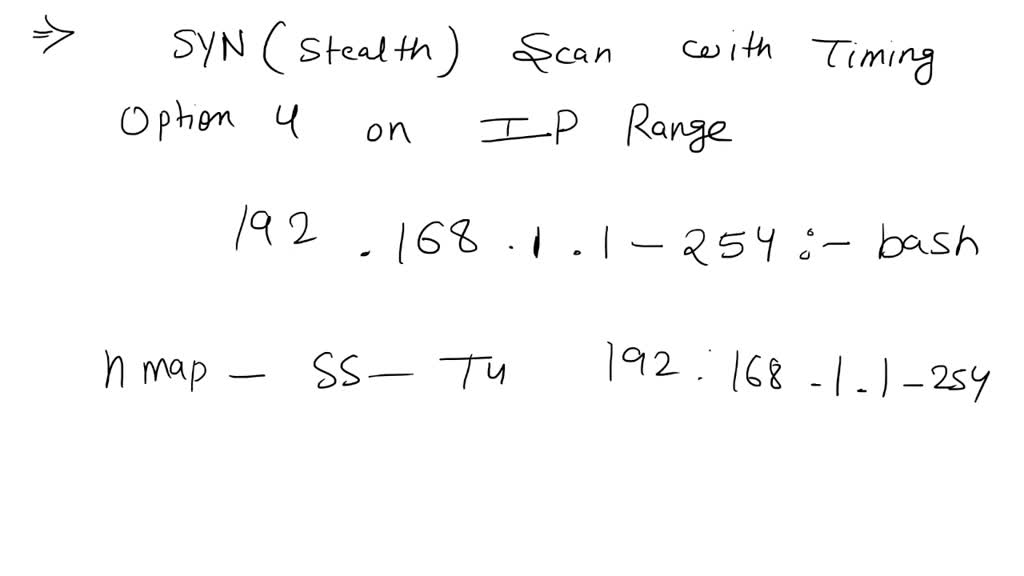 ⇒ SYN (Stealth) Scan with Timing
Option 4 on IP Range
192.168.1.1-254:- bash
nmap - SS - T4 192:168.1.1-254